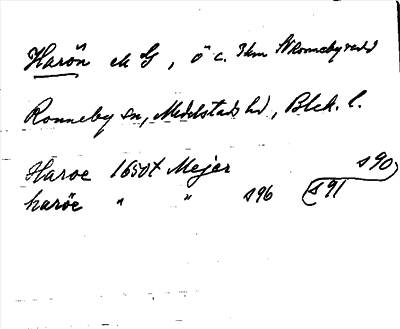 Harön m G, ö c. 3 km N Ronnebyredd
Ronneby sn, Medelstads hd, Blek. l.
Haroe 1650t Mejer s 90
haröe " " s 96 s 91